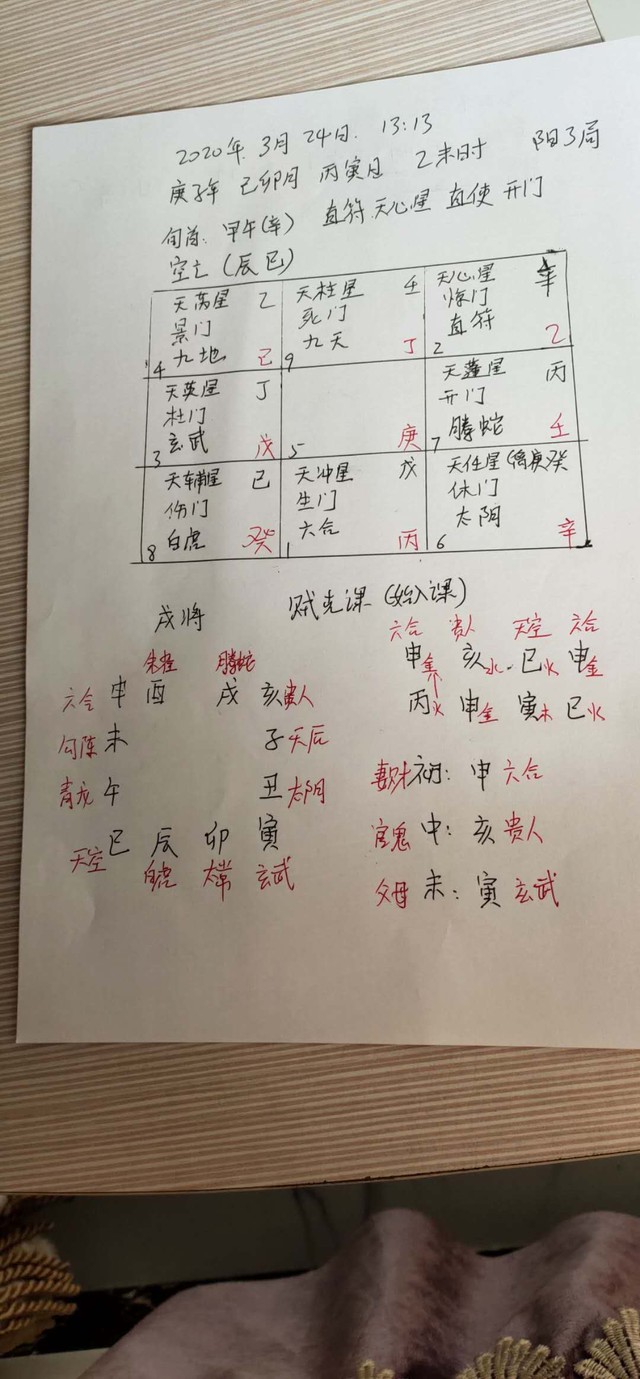 2020年 3月 24日. 13:13
庚子年 己卯月 丙寅日 乙未时 阳3局
旬首: 甲午(辛) 直符 天心星 直使 开门
空亡 (辰巳)
天芮星 乙 天柱星 壬 天心星 辛
景门 死门 惊门
九地 己 九天 丁 直符 乙
4 9 2
天英星 丁 天蓬星 丙
杜门 开门
玄武 戊 庚 腾蛇 壬
3 5 7
天辅星 己 天冲星 戊 天任星(禽庚癸
伤门 生门 休门
白虎 癸 六合 丙 太阴 辛
8 1 6
戌将 贼克课 (始入课)
六合 贵人 天空 六合
申金 亥水 巳火 申金
丙火 申金 寅木 巳火
朱雀 腾蛇
六合 申 酉 戌 亥贵人
勾陈 未 子天后
青龙 午 丑太阴
天空 巳 辰 卯 寅
白虎 太常 玄武
妻财 初: 申 六合
官鬼 中: 亥 贵人
父母 末: 寅 玄武